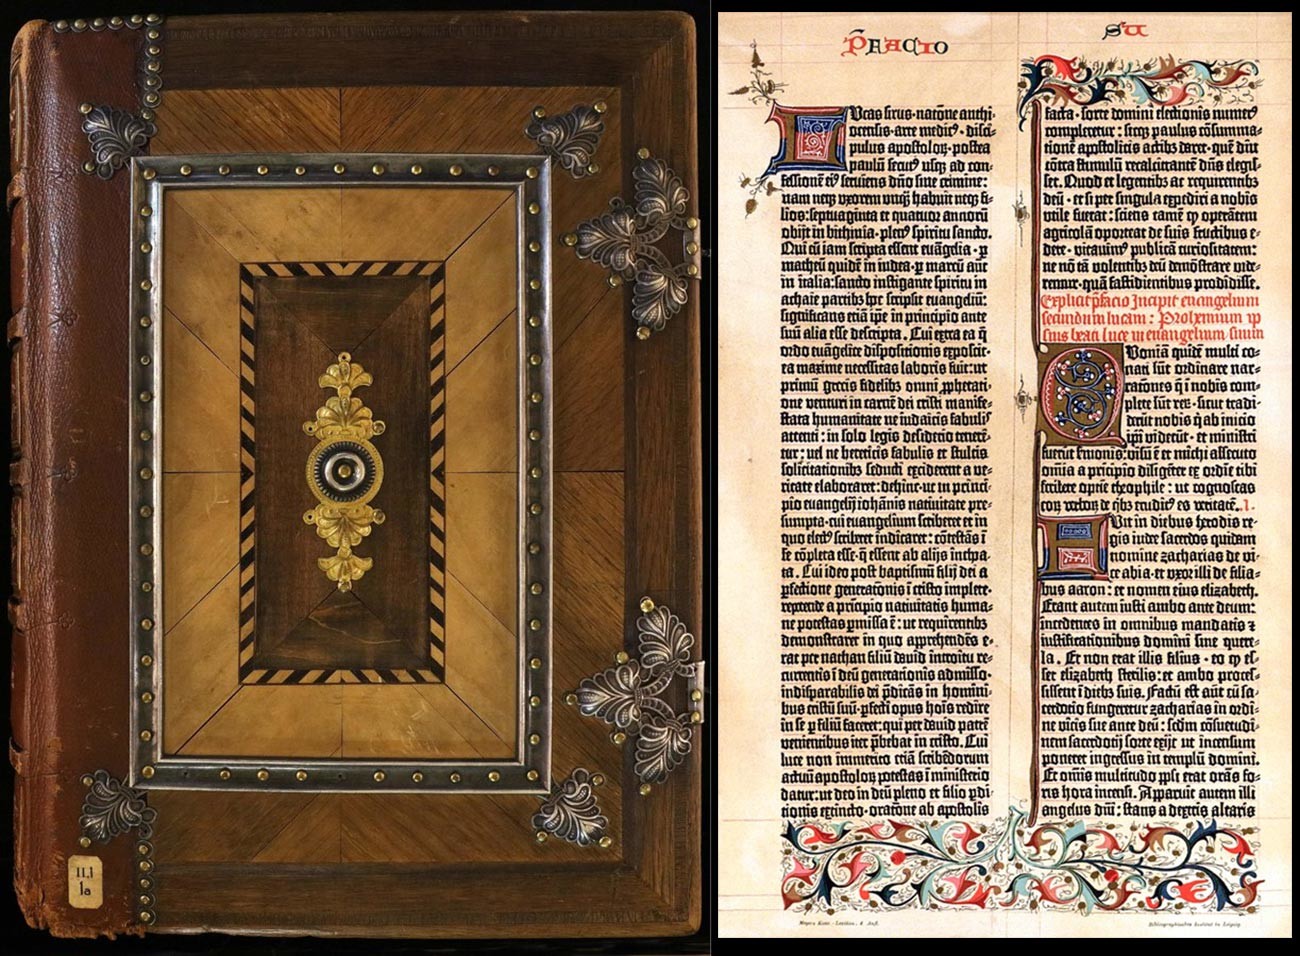 II,1
1a
P̄FACIO
SU
Lucas sirus·natōne anthi
ocensis·arte medic9·disci-
pulus apostoloꝝ·postea
paulū secut9 usqꝫ ad con-
fessionē ei9 serviens dño sine crimine:
nam neqꝫ uxorem unqꝫ habuit neqꝫ fi-
lios: septuaginta et quatuor annorū
obijt in bithinia·plen9 spiritu sancto.
Qui cū iam scripta essent euāgelia·ꝑ
matheū quidē in iudea·ꝑ marcū aūt
in italia: sancto instigante spiritu in
achaie partibꝫ hoc scripsit euangeliū:
significans etiā ipe in principio ante
suū alia esse descripta. Cui extra ea q̄
ordo euāgelice dispositionis exposcit·
ea maxime necessitas laboris fuit: ut
primū grecis fidelibꝫ omni ꝓphetati-
one venturi in carnē dei cristi manife-
stata humanitate ne iudaicis fabulis
attenti: in solo legis desiderio teneren̄-
tur: vel ne hereticis fabulis et stultis
solicitationibꝫ seducti exciderent a ve-
ritate elaboraret: dehinc·ut in princi-
pio euangelij iohānis nativitate pre-
sumpta·cui euangelium scriberet et in
quo elect9 scriberet indicaret: cōtestās ī
se cōpleta esse·q̄ essent ab alijs incho-
ta. Cui ideo post baptismū filij dei a
ꝑfectione generatōnis ī cristo implete·
repetende a prīcipio nativitatis huma-
ne potestas ꝑmissa ē: ut requirentibꝫ
demonstraret in quo apprehendēs e-
rat per nathan filiū david introitu re-
currentis ī deū generationis admisso·
indisparabilis dei p̄dicās in homini-
bus cristū suū·ꝑfecti opus hoīs redire
in se ꝑ filiū faceret: qui per david patrē
venientibus iter p̄bebat in cristo. Cui
luce non immerito etiā scribēdorum
actuū apostoloꝝ potestas ī ministerio
datur: ut deo in deū pleno et filio ꝓdi-
tionis extincto·oratōne ab apostolis
facta·sorte domini electionis numer9
completetur: sicqꝫ paulus cōsumma-
tionē apostolicis actibꝫ daret·quē diu
cōtra stimulū recalcitrantē dñs elegis-
set. Quod et legentibꝫ ac requirentibꝫ
deū·etsi per singula expediri a nobis
utile fuerat: sciens tamē ꝙ operātem
agricolā oporteat de suis fructibus e-
dere·vitavim9 publicā curiositatem:
ne nō tā volentibꝫ deū demōstrare vide-
remur·quā fastidientibus prodidisse.
Explicit p̄facio Incipit euangelium
secundum lucam: Prohemium ip
sius beati luce in euangelium suum
Quoniā quidē multi co-
nati sūt ordinare nar-
ratōnes q̄ ī nobis com-
plete sūt reꝝ·sicut tradi-
derūt nobis q̄ ab inicio
ipi viderūt·et ministri
fuerūt sermonis: visū ē et michi assecuto
omīa a principio diligēter ex ordīe tibi
scribere optīe theophile: ut cognoscas
eoꝝ verboꝝ de qibꝫ erudit9 es veritatē. I.
Fuit in diebus herodis re-
gis iudee sacerdos quidam
nomine zacharias de vi-
ce abia·et uxor illi de filia-
bus aaron: et nomen eius elizabeth.
Erant autem iusti ambo ante deum:
incedentes in omnibus mandatis ⁊
iustificationibus domini sine quere-
la. Et non erat illis filius·eo ꝙ es-
set elizabeth sterilis: et ambo proces-
sissent ī diebꝫ suis. Factū est aūt cū sa-
cerdotio fungeretur zacharias in ordi-
ne vicis sue ante deū: scdm cōsuetudi-
nem sacerdotij sorte exijt ut incensum
poneret ingressus in templū domini.
Et omīs multitudo ppli erat orās fo-
ris hora incensi. Apparuit autem illi
angelus dñi: stans a dextris altaris
Meyers Konv.-Lexikon, 4. Aufl.
Bibliographisches Institut in Leipzig